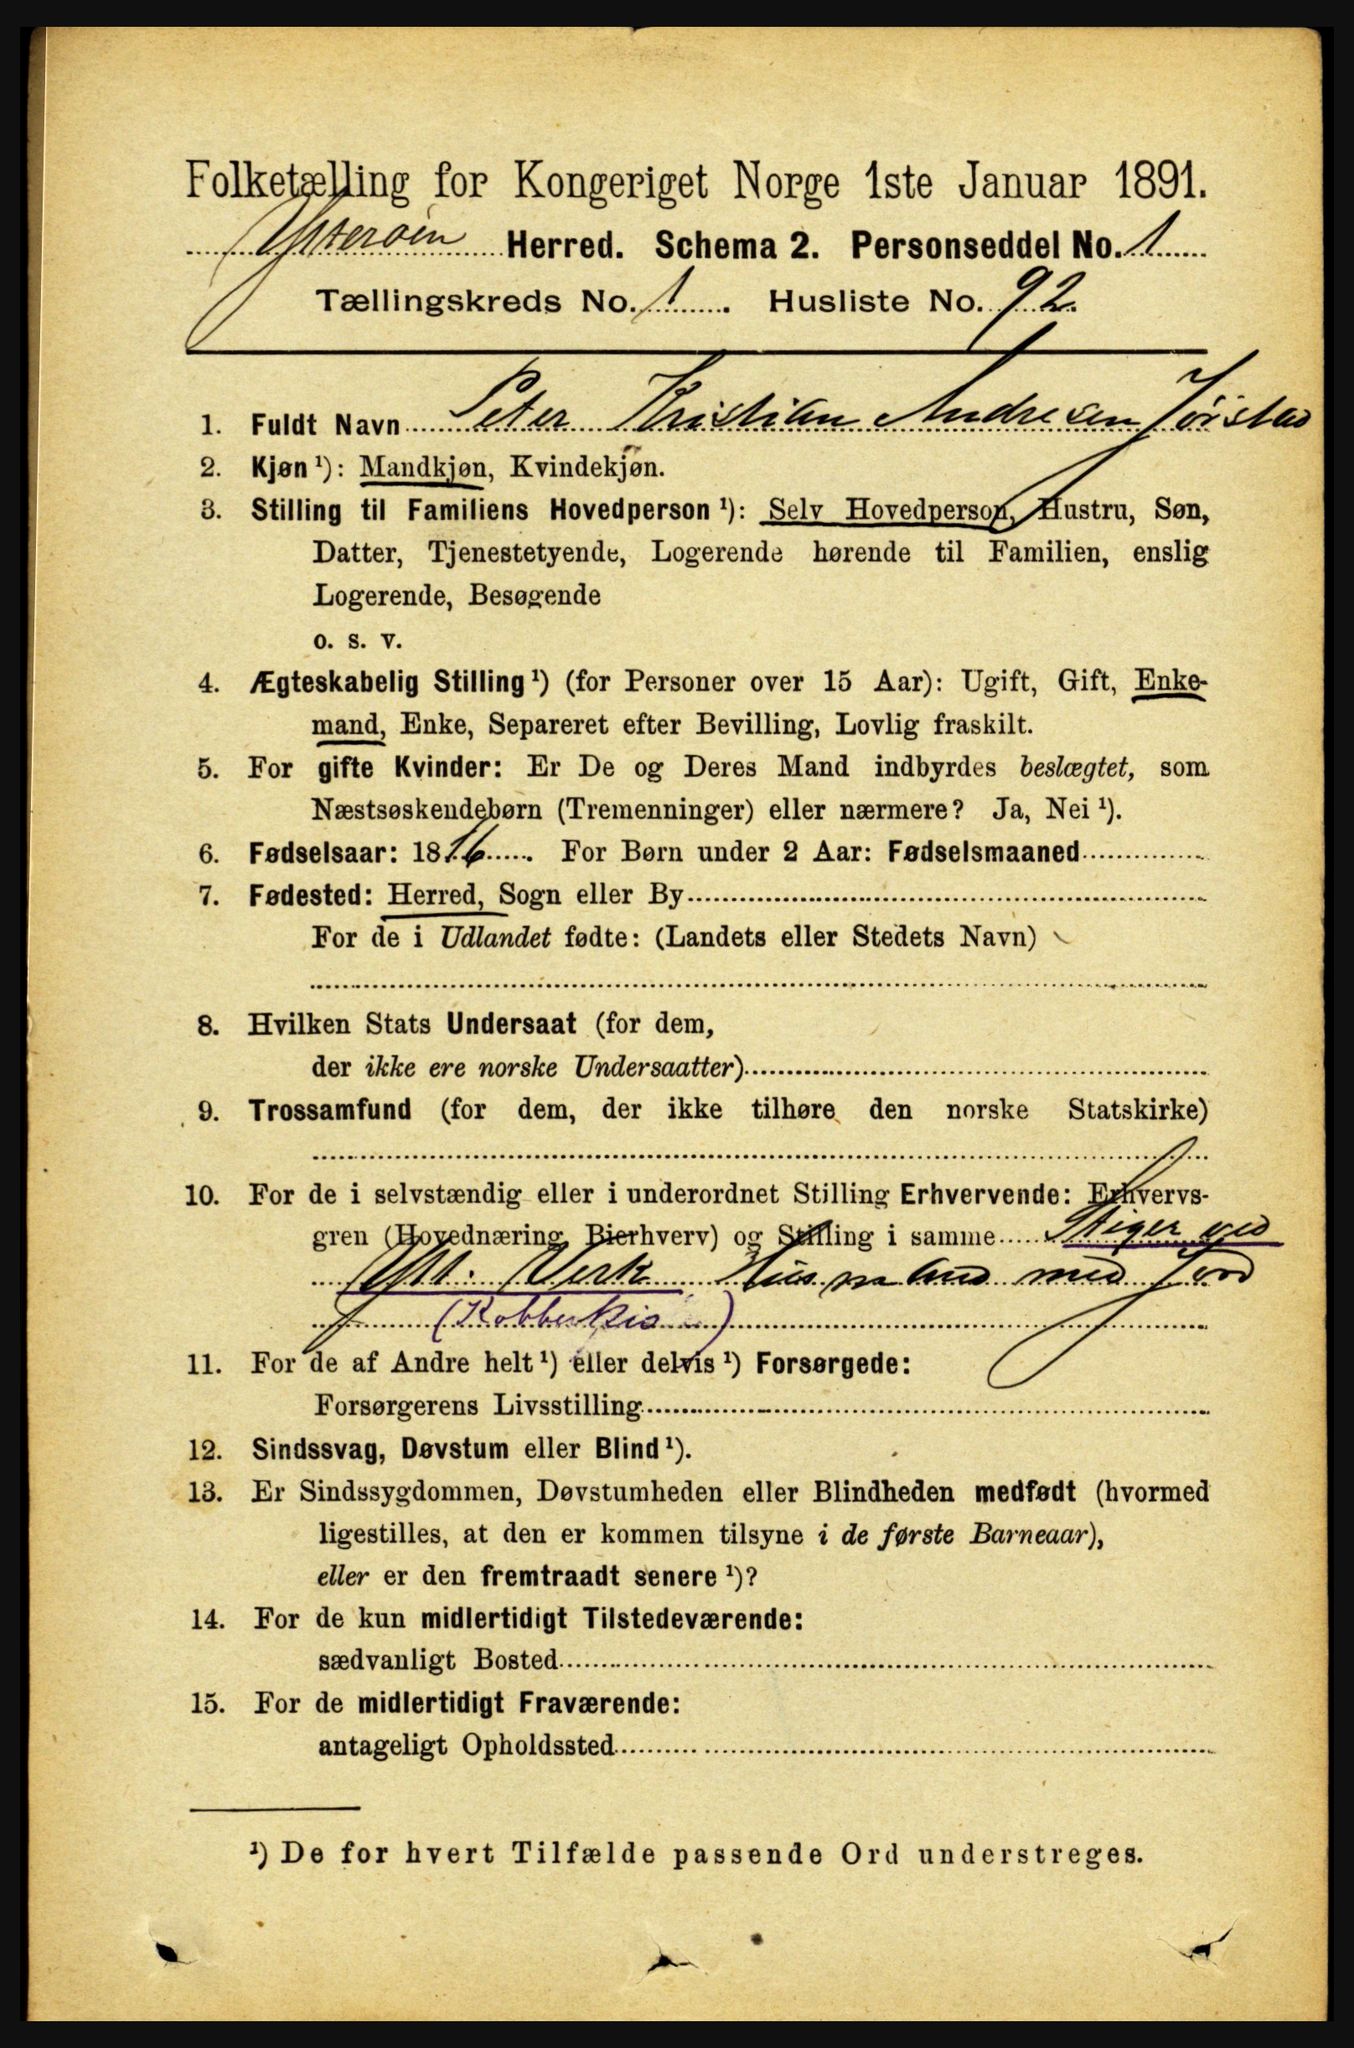 Folketælling for Kongeriget Norge 1ste Januar 1891.
Ytterøen Herred. Schema 2. Personseddel No. 1
Tællingskreds No. 1. Husliste No. 92.
1. Fuldt Navn Peter Kristian Andresen Jørstad
2. Kjøn ¹): Mandkjøn, Kvindekjøn.
3. Stilling til Familiens Hovedperson ¹): Selv Hovedperson, Hustru, Søn,
Datter, Tjenestetyende, Logerende hørende til Familien, enslig
Logerende, Besøgende
o. s. v.
4. Ægteskabelig Stilling ¹) (for Personer over 15 Aar): Ugift, Gift, Enke-
mand, Enke, Separeret efter Bevilling, Lovlig fraskilt.
5. For gifte Kvinder: Er De og Deres Mand indbyrdes beslægtet, som
Næstsøskendebørn (Tremenninger) eller nærmere? Ja, Nei ¹).
6. Fødselsaar: 1816. For Børn under 2 Aar: Fødselsmaaned
7. Fødested: Herred, Sogn eller By
For de i Udlandet fødte: (Landets eller Stedets Navn)
8. Hvilken Stats Undersaat (for dem,
der ikke ere norske Undersaatter)
9. Trossamfund (for dem, der ikke tilhøre den norske Statskirke)
10. For de i selvstændig eller i underordnet Stilling Erhvervende: Erhvervs-
gren (Hovednæring, Bierhverv) og Stilling i samme Stiger ved
Ytt. Verk Husmand med Jord
(Kobberkis)
11. For de af Andre helt ¹) eller delvis ¹) Forsørgede:
Forsørgerens Livsstilling
12. Sindssvag, Døvstum eller Blind ¹).
13. Er Sindssygdommen, Døvstumheden eller Blindheden medfødt (hvormed
ligestilles, at den er kommen tilsyne i de første Barneaar),
eller er den fremtraadt senere ¹)?
14. For de kun midlertidigt Tilstedeværende:
sædvanligt Bosted
15. For de midlertidigt Fraværende:
antageligt Opholdssted
¹) De for hvert Tilfælde passende Ord understreges.